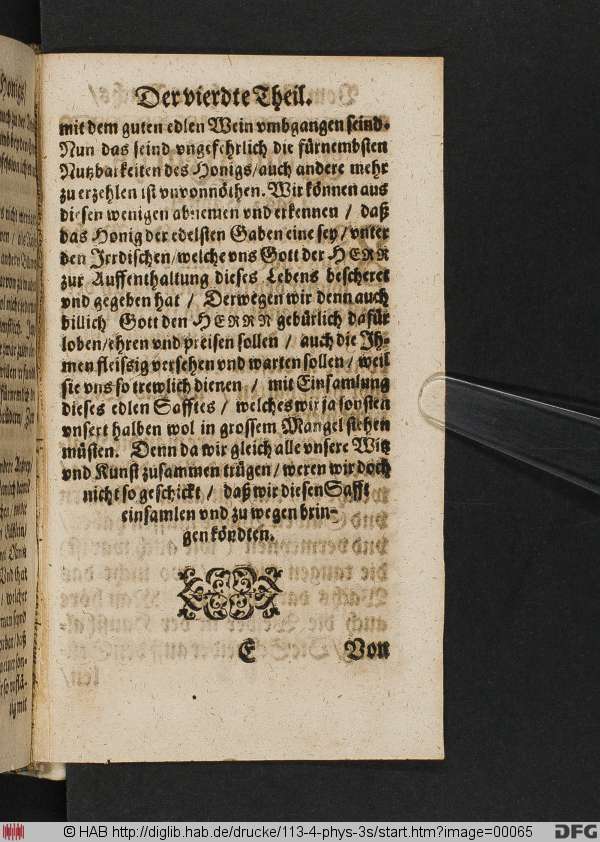 Der vierdte Theil.
mit dem guten edlen Wein vmbgangen seind.
Nun das seind vngefehrlich die fürnembsten
Nutzbarkeiten des Honigs/auch andere mehr
zu erzehlen ist vnvonnöthen. Wir können aus
diesen wenigen abnemen vnd erkennen / daß
das Honig der edelsten Gaben eine sey/vnter
den Irrdischen/welche vns Gott der HERR
zur Auffenthaltung dieses Lebens bescheret
vnd gegeben hat / Derwegen wir denn auch
billich Gott den HERRN gebürlich dafür
loben/ehren vnd preisen sollen / auch die Ih-
men fleissig versehen vnd warten sollen / weil
sie vns so trewlich dienen / mit Einsamlung
dieses edlen Safftes / welches wir ja sonsten
vnsert halben wol in grossem Mangel stehen
müsten. Denn da wir gleich alle vnsere Witz
vnd Kunst zusammen trügen/weren wir doch
nicht so geschickt / daß wir diesen Safft
einsamlen vnd zu wegen brin-
gen köndten.
E Von
© HAB http://diglib.hab.de/drucke/113-4-phys-3s/start.htm?image=00065
DFG